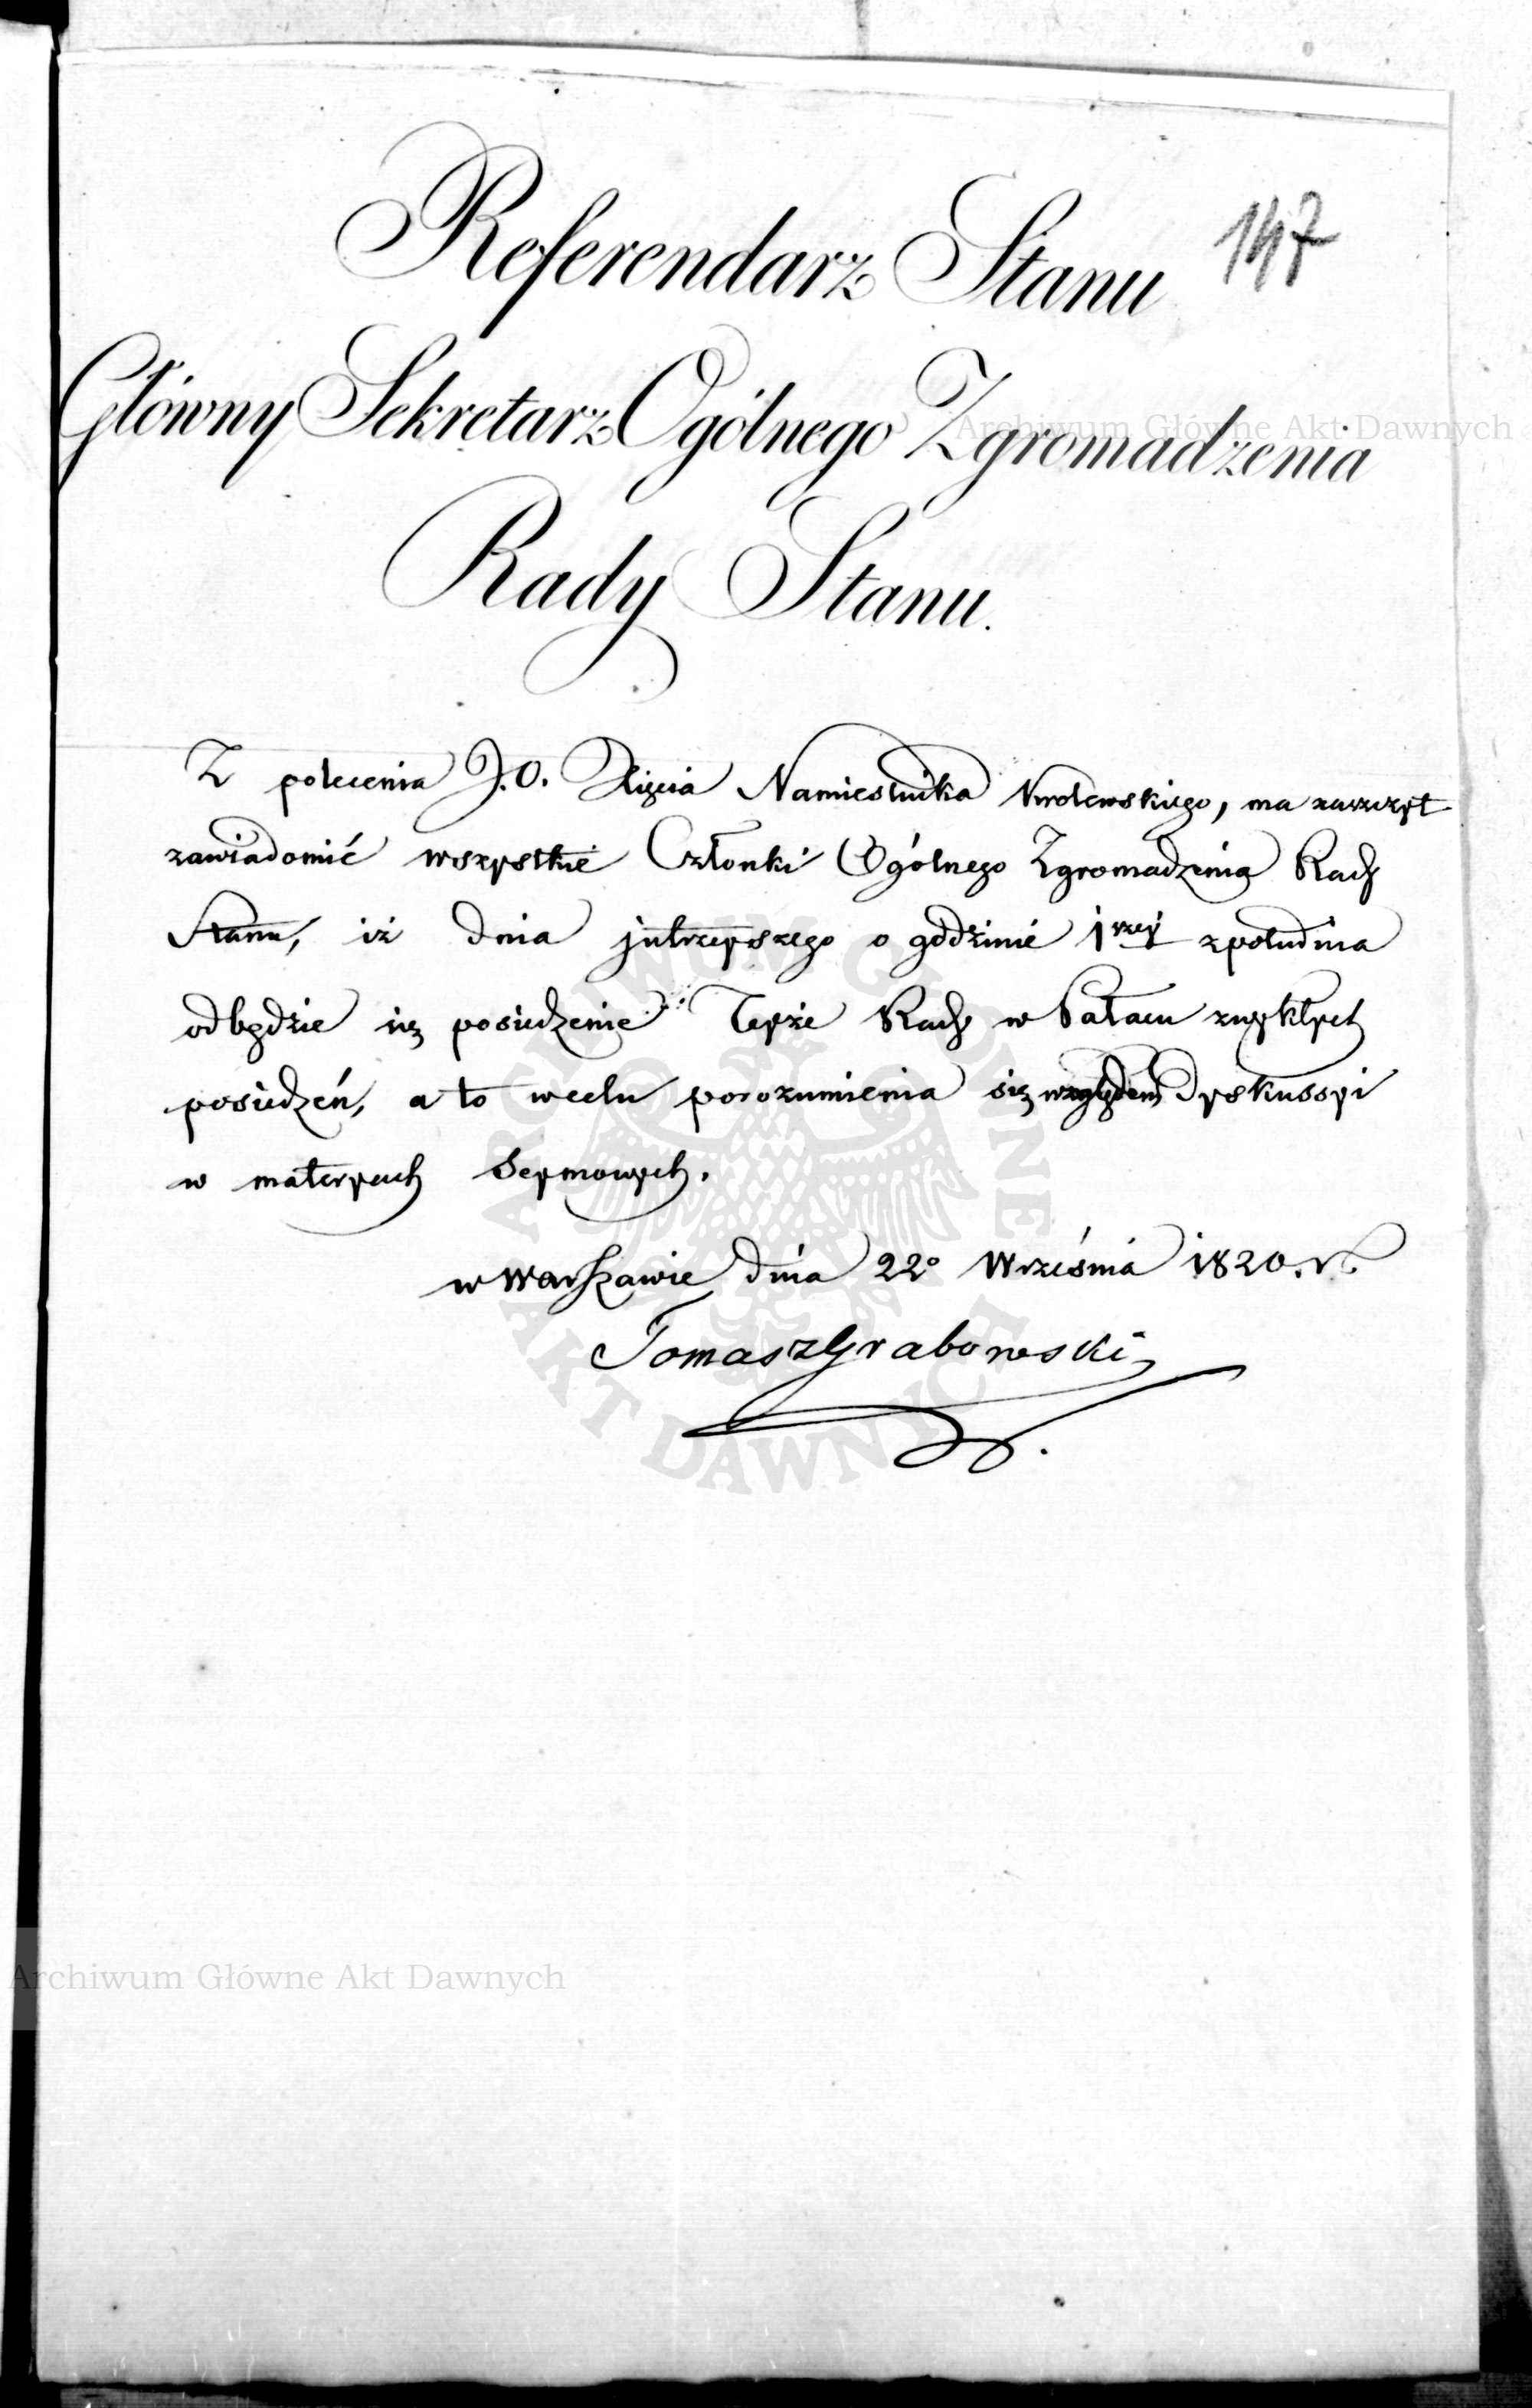 147
Referendarz Stanu
Główny Sekretarz Ogólnego Zgromadzenia
Rady Stanu.
Z polecenia J.O. Xięcia Namiestnika Krolewskiego, ma zaszczyt
zawiadomić wszystkie Członki Ogólnego Zgromadzenia Rady
Stanu, iż dnia jutrzeyszego o godzinie 1wszey z południa
odbędzie się posiedzenie Teyże Rady w Pałacu zwykłych
posiedzeń, a to w celu porozumienia się względem Dyskussyi
w materyach Seymowych.
w Warszawie dnia 22º Września 1820. r.
Tomasz Grabowski
Archiwum Główne Akt Dawnych
ARCHIWUM GŁÓWNE
AKT DAWNYCH
Archiwum Główne Akt Dawnych